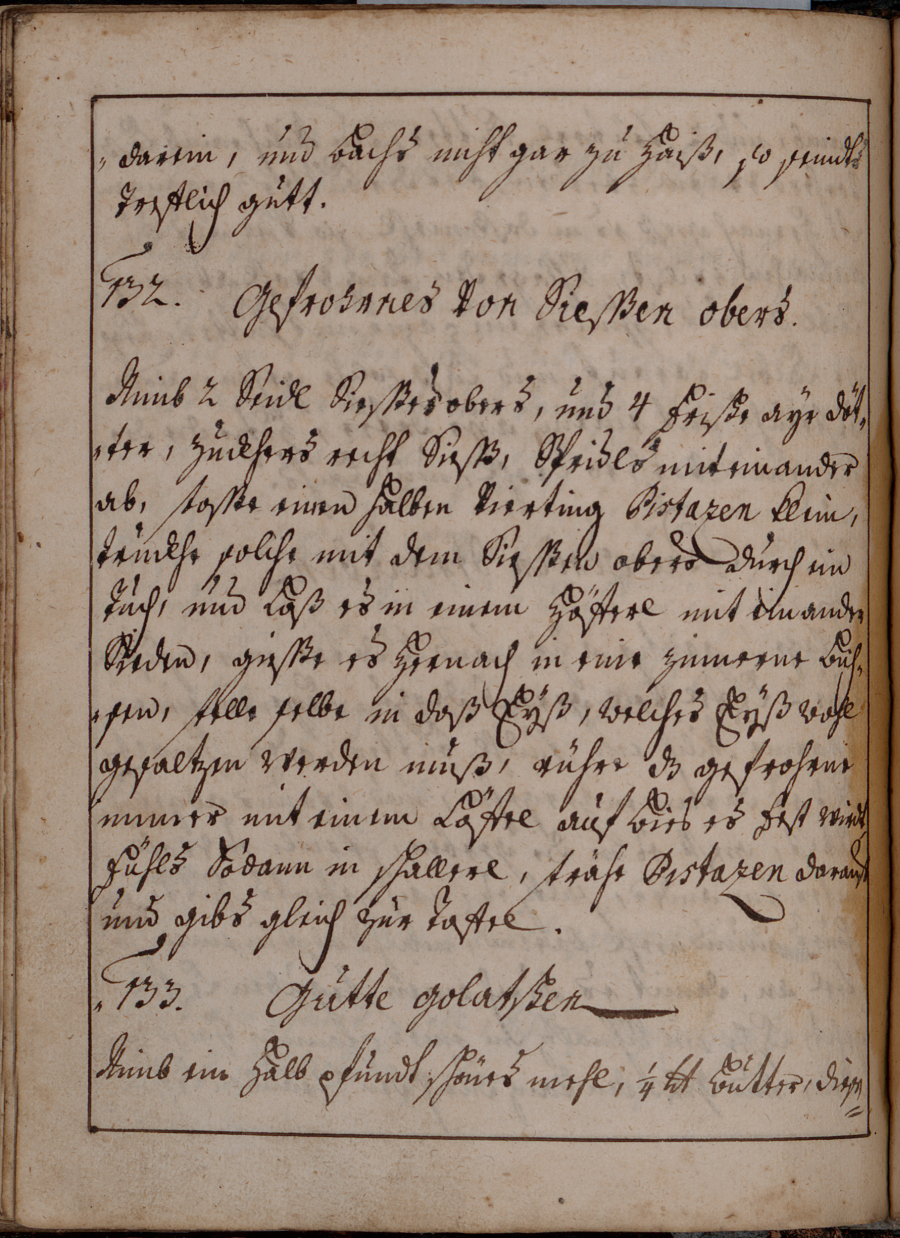 darein, und bachs nicht gar zu haiß, so seindts
trefflich gutt.
132. Gefrohrnes von Siessen obers.
Nimb 2 Seidl Siesses obers, und 4 frische ayr döt¬
ter, zuckhers recht Siess, Spridls miteinander
ab, stosse einen halben Vierting Pistazen klein,
truckhe solche mit dem Siessen obers durch ein
tuch, und laß es in einem Häfferl mit einander
Sieden, giesse es hernach in eine zinnerne Büch¬
sen, stelle selbe in daß Eyß, welches Eyß wohl
gesaltzen werden muß, rühre ds gefrohrne
immer mit einem Löffel auf bies es fest wirdt
fühls Sodann in schallerl, strähe Pistazen darauf
und gibs gleich zur Taffel.
133. Gutte golatschen
Nimb ein halb pfundt schönes mehl, ¼ ℔ butter, diese